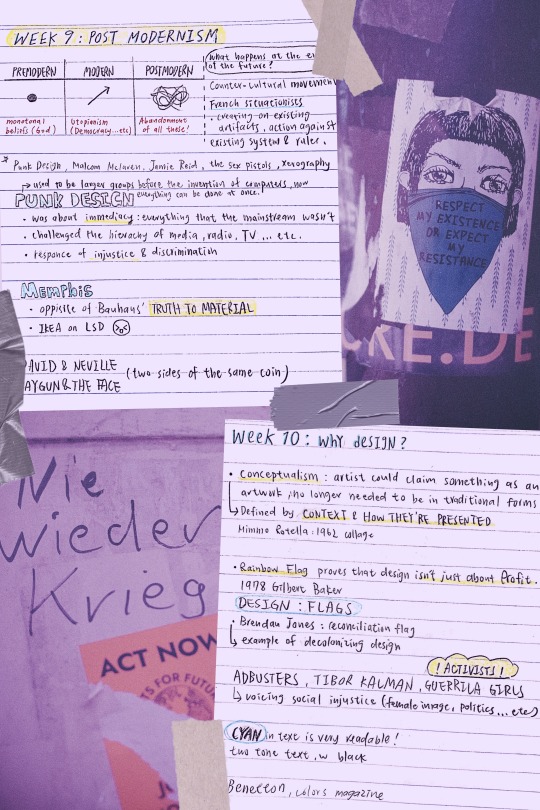 WEEK 9: POST MODERNISM
what happens at the
of the future?
PREMODERN
MODERN
POSTMODERN
monotonal
beliefs (God)
Utopianism
(Democracy...etc)
Abandonment
of all these!
Counter-cultural movement
French situationists
creating on existing
artifacts, action against
existing system & ruler.
Punk Design, Malcom Mclaren, Jamie Reid, the sex pistols, xerography
used to be larger groups before the invention of computers, now
everything can be done at once!
PUNK DESIGN
• was about immediacy: everything that the mainstream wasn't
• challenged the hierachy of media, radio, TV ... etc.
• response of injustice & discrimination
MEMPHIS
• oppisite of Bauhaus' TRUTH TO MATERIAL
• IKEA on LSD
AVID & NEVILLE
AYGUN & THE FACE
(two sides of the same coin)
RESPECT
MY EXISTENCE
OR EXPECT
MY
RESISTANCE
RE.DE
Nie
wieder
Krieg
ACT NOW
S FOR FUTU
Week 10: WHY DESIGN?
• Conceptualism: artist could claim something as an
artwork; no longer needed to be in traditional forms
Defined by CONTEXT & HOW THEY'RE PRESENTED
Mimmo Rotella: 1962 collage
• Rainbow Flag proves that design isn't just about Profit.
1978 Gilbert Baker
DESIGN: FLAGS
• Brendan Jones: reconciliation flag
example of decolonizing design
! ACTIVISTS!
ADBUSTERS, TIBOR KALMAN, GUERRILA GIRLS
voicing social injustice (female image, politics...etc)
CYAN in text is very readable!
two tone text, w black
Benetton, colors magazine